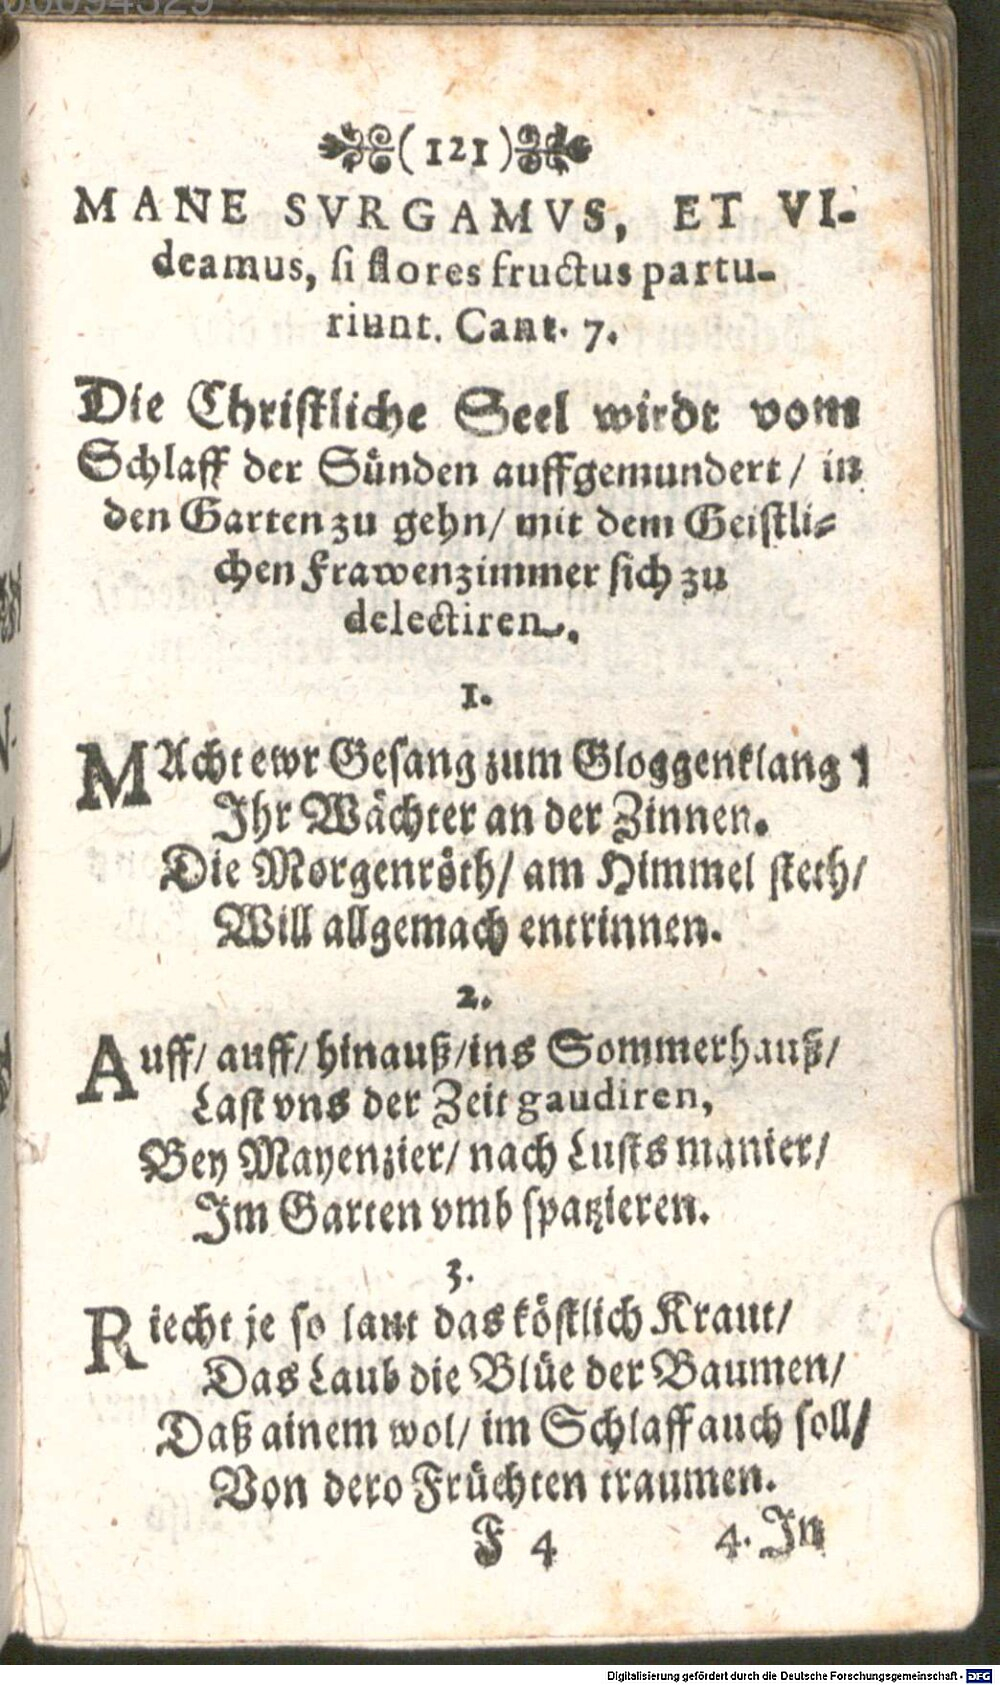 (121)
MANE SVRGAMVS, ET VI-
deamus, ſi flores fructus partu-
riunt. Cant. 7.
Die Chriſtliche Seel wirdt vom
Schlaff der Sünden auffgemundert / in
den Garten zu gehn / mit dem Geiſtli-
chen Frawenzimmer ſich zu
delectiren.
1.
MAcht ewr Geſang zum Gloggenklang
Ihr Wächter an der Zinnen.
Die Morgenröth / am Himmel ſteth /
Will allgemach entrinnen.
2.
Auff / auff / hinauß / ins Sommerhauß /
Laſt vns der Zeit gaudiren,
Bey Mayenzier / nach Luſts manier /
Im Garten vmb ſpatzieren.
3.
Riecht je ſo laut das köſtlich Kraut /
Das Laub die Blüe der Baumen /
Daß ainem wol / im Schlaff auch ſoll /
Von dero Früchten traumen.
F 4 4. In
Digitalisierung gefördert durch die Deutsche Forschungsgemeinschaft - DFG